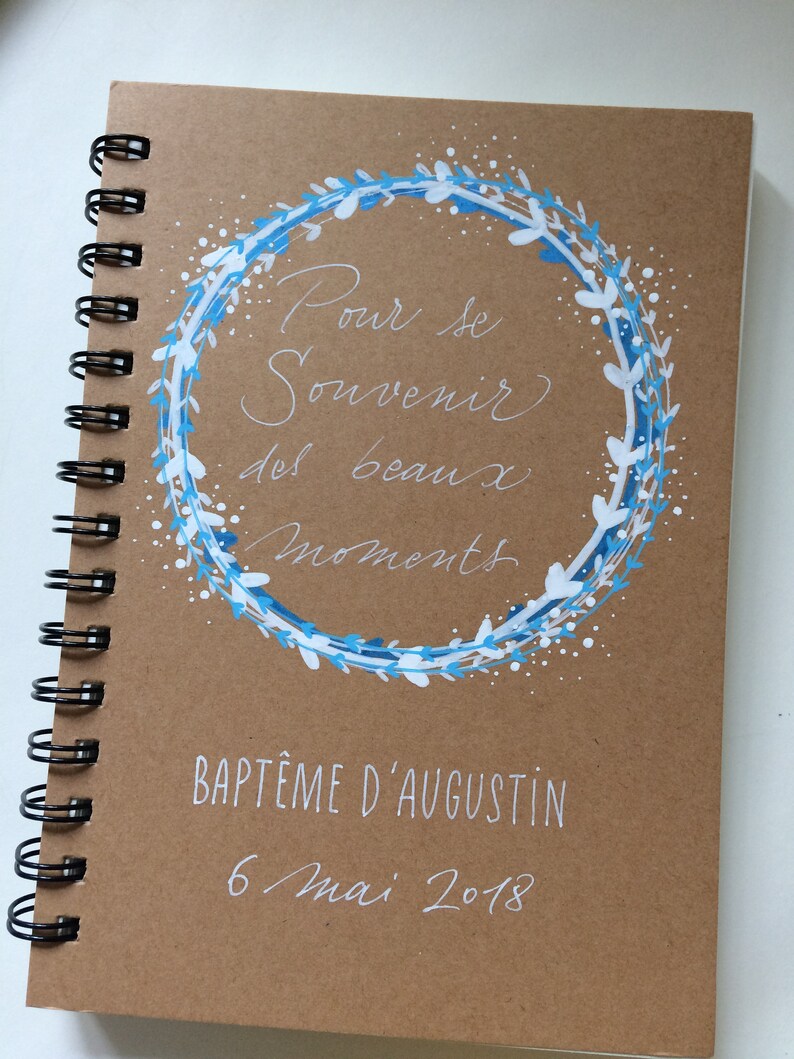 Pour se
Souvenir
des beaux
moments
BAPTÊME D'AUGUSTIN
6 mai 2018